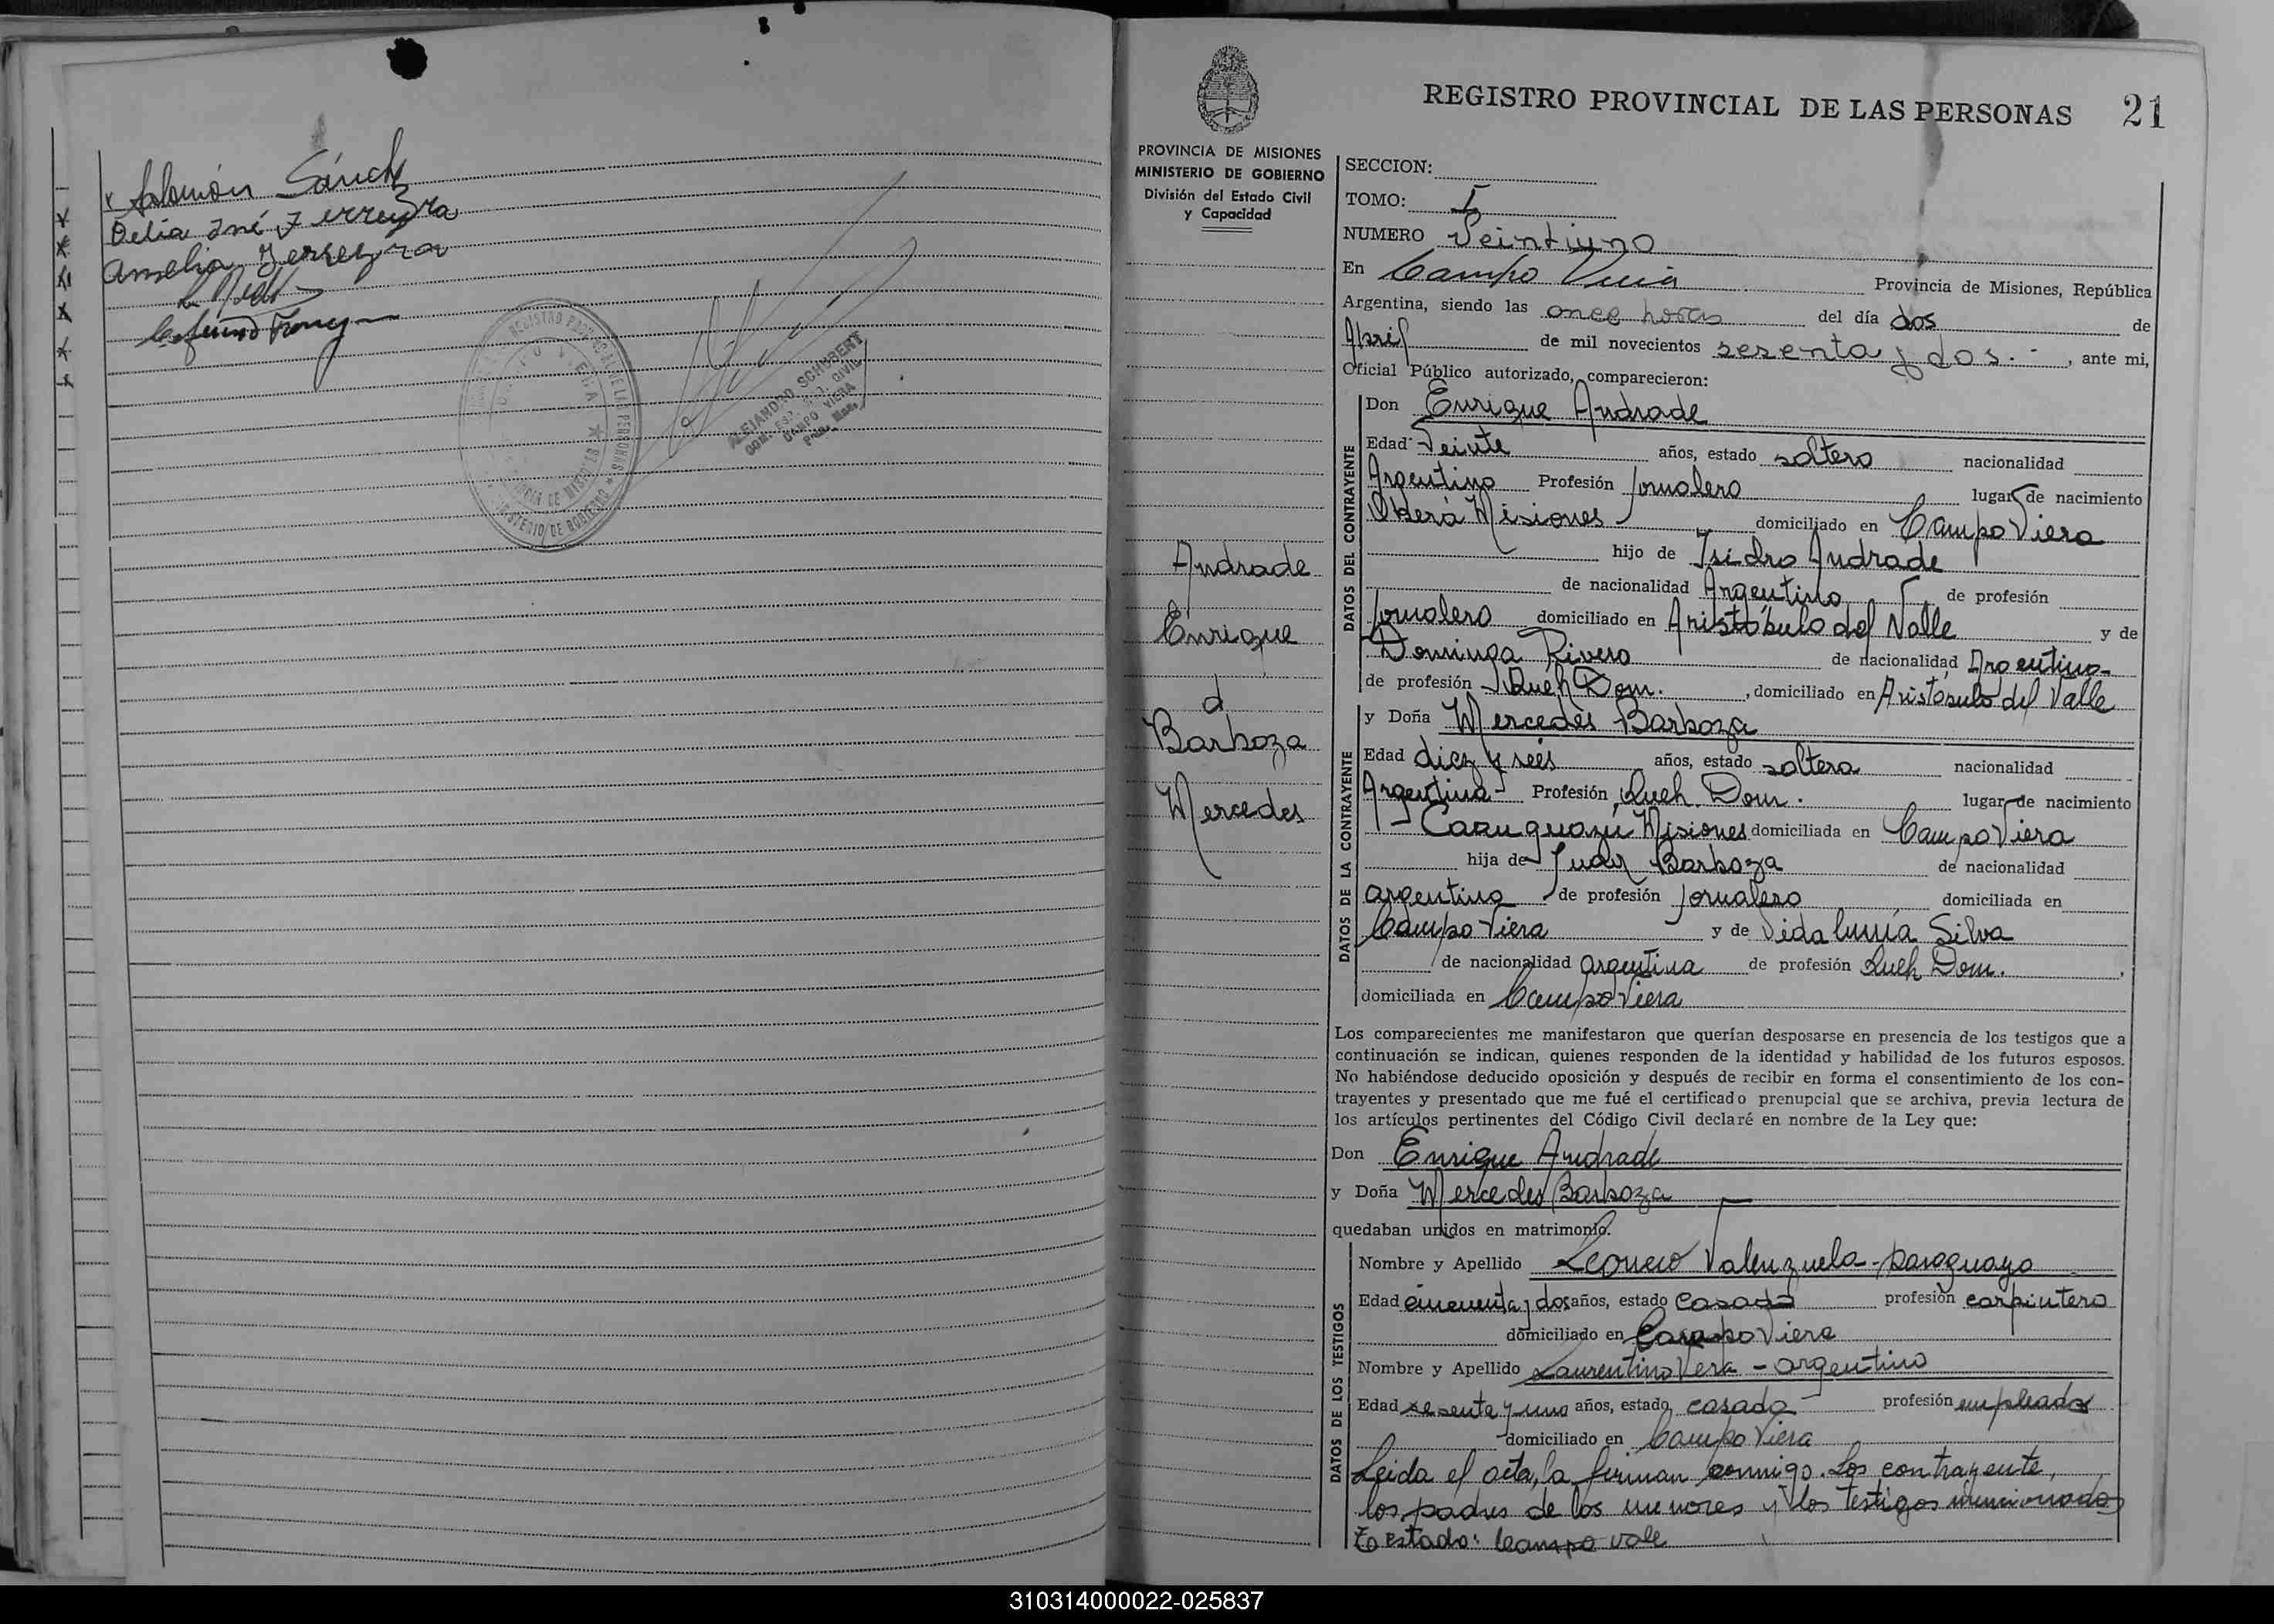 Sánch
Delia Iné Ferreyra
Amelia Ferreyra
ALEJANDRO SCHUBERT
CAMPO VIERA
REGISTRO PROVINCIAL DE LAS PERSONAS 21
PROVINCIA DE MISIONES
MINISTERIO DE GOBIERNO
División del Estado Civil
y Capacidad
Andrade
Enrique
Barboza
Mercedes
SECCION:
TOMO: I
NUMERO Veintiuno
En Campo Viera Provincia de Misiones, República
Argentina, siendo las once horas del día dos de
Abril de mil novecientos sesenta y dos.- , ante mi,
Oficial Público autorizado, comparecieron:
DATOS DEL CONTRAYENTE
Don Enrique Andrade
Edad Veinte años, estado soltero nacionalidad
Argentino Profesión Jornalero lugar de nacimiento
Oberá Misiones domiciliado en Campo Viera
hijo de Isidro Andrade
de nacionalidad Argentino de profesión
Jornalero domiciliado en Aristóbulo del Valle y de
Dominga Rivero de nacionalidad Argentina-
de profesión Queh. Dom. , domiciliado en Aristóbulo del Valle
DATOS DE LA CONTRAYENTE
y Doña Mercedes Barboza
Edad diez y seis años, estado soltera nacionalidad
Argentina Profesión Queh. Dom. lugar de nacimiento
Misiones domiciliada en Campo Viera
hija de Juan Barboza de nacionalidad
argentino de profesión Jornalero domiciliada en
Campo Viera y de Silva
de nacionalidad argentina de profesión Queh Dom. ,
domiciliada en Campo Viera
Los comparecientes me manifestaron que querían desposarse en presencia de los testigos que a
continuación se indican, quienes responden de la identidad y habilidad de los futuros esposos.
No habiéndose deducido oposición y después de recibir en forma el consentimiento de los con-
trayentes y presentado que me fué el certificado prenupcial que se archiva, previa lectura de
los artículos pertinentes del Código Civil declaré en nombre de la Ley que:
Don Enrique Andrade
y Doña Mercedes Barboza
quedaban unidos en matrimonio.
DATOS DE LOS TESTIGOS
Nombre y Apellido Valenzuela - paraguayo
Edad cincuenta y dos años, estado Casado profesión carpintero
domiciliado en Campo Viera
Nombre y Apellido Laurentino Vera - argentino
Edad sesenta y uno años, estado casado profesión empleado
domiciliado en Campo Viera
Leida el acta, la firman conmigo. Los contrayente,
los padres de los menores y los testigos mencionados
Testado: Campo vale
310314000022-025837